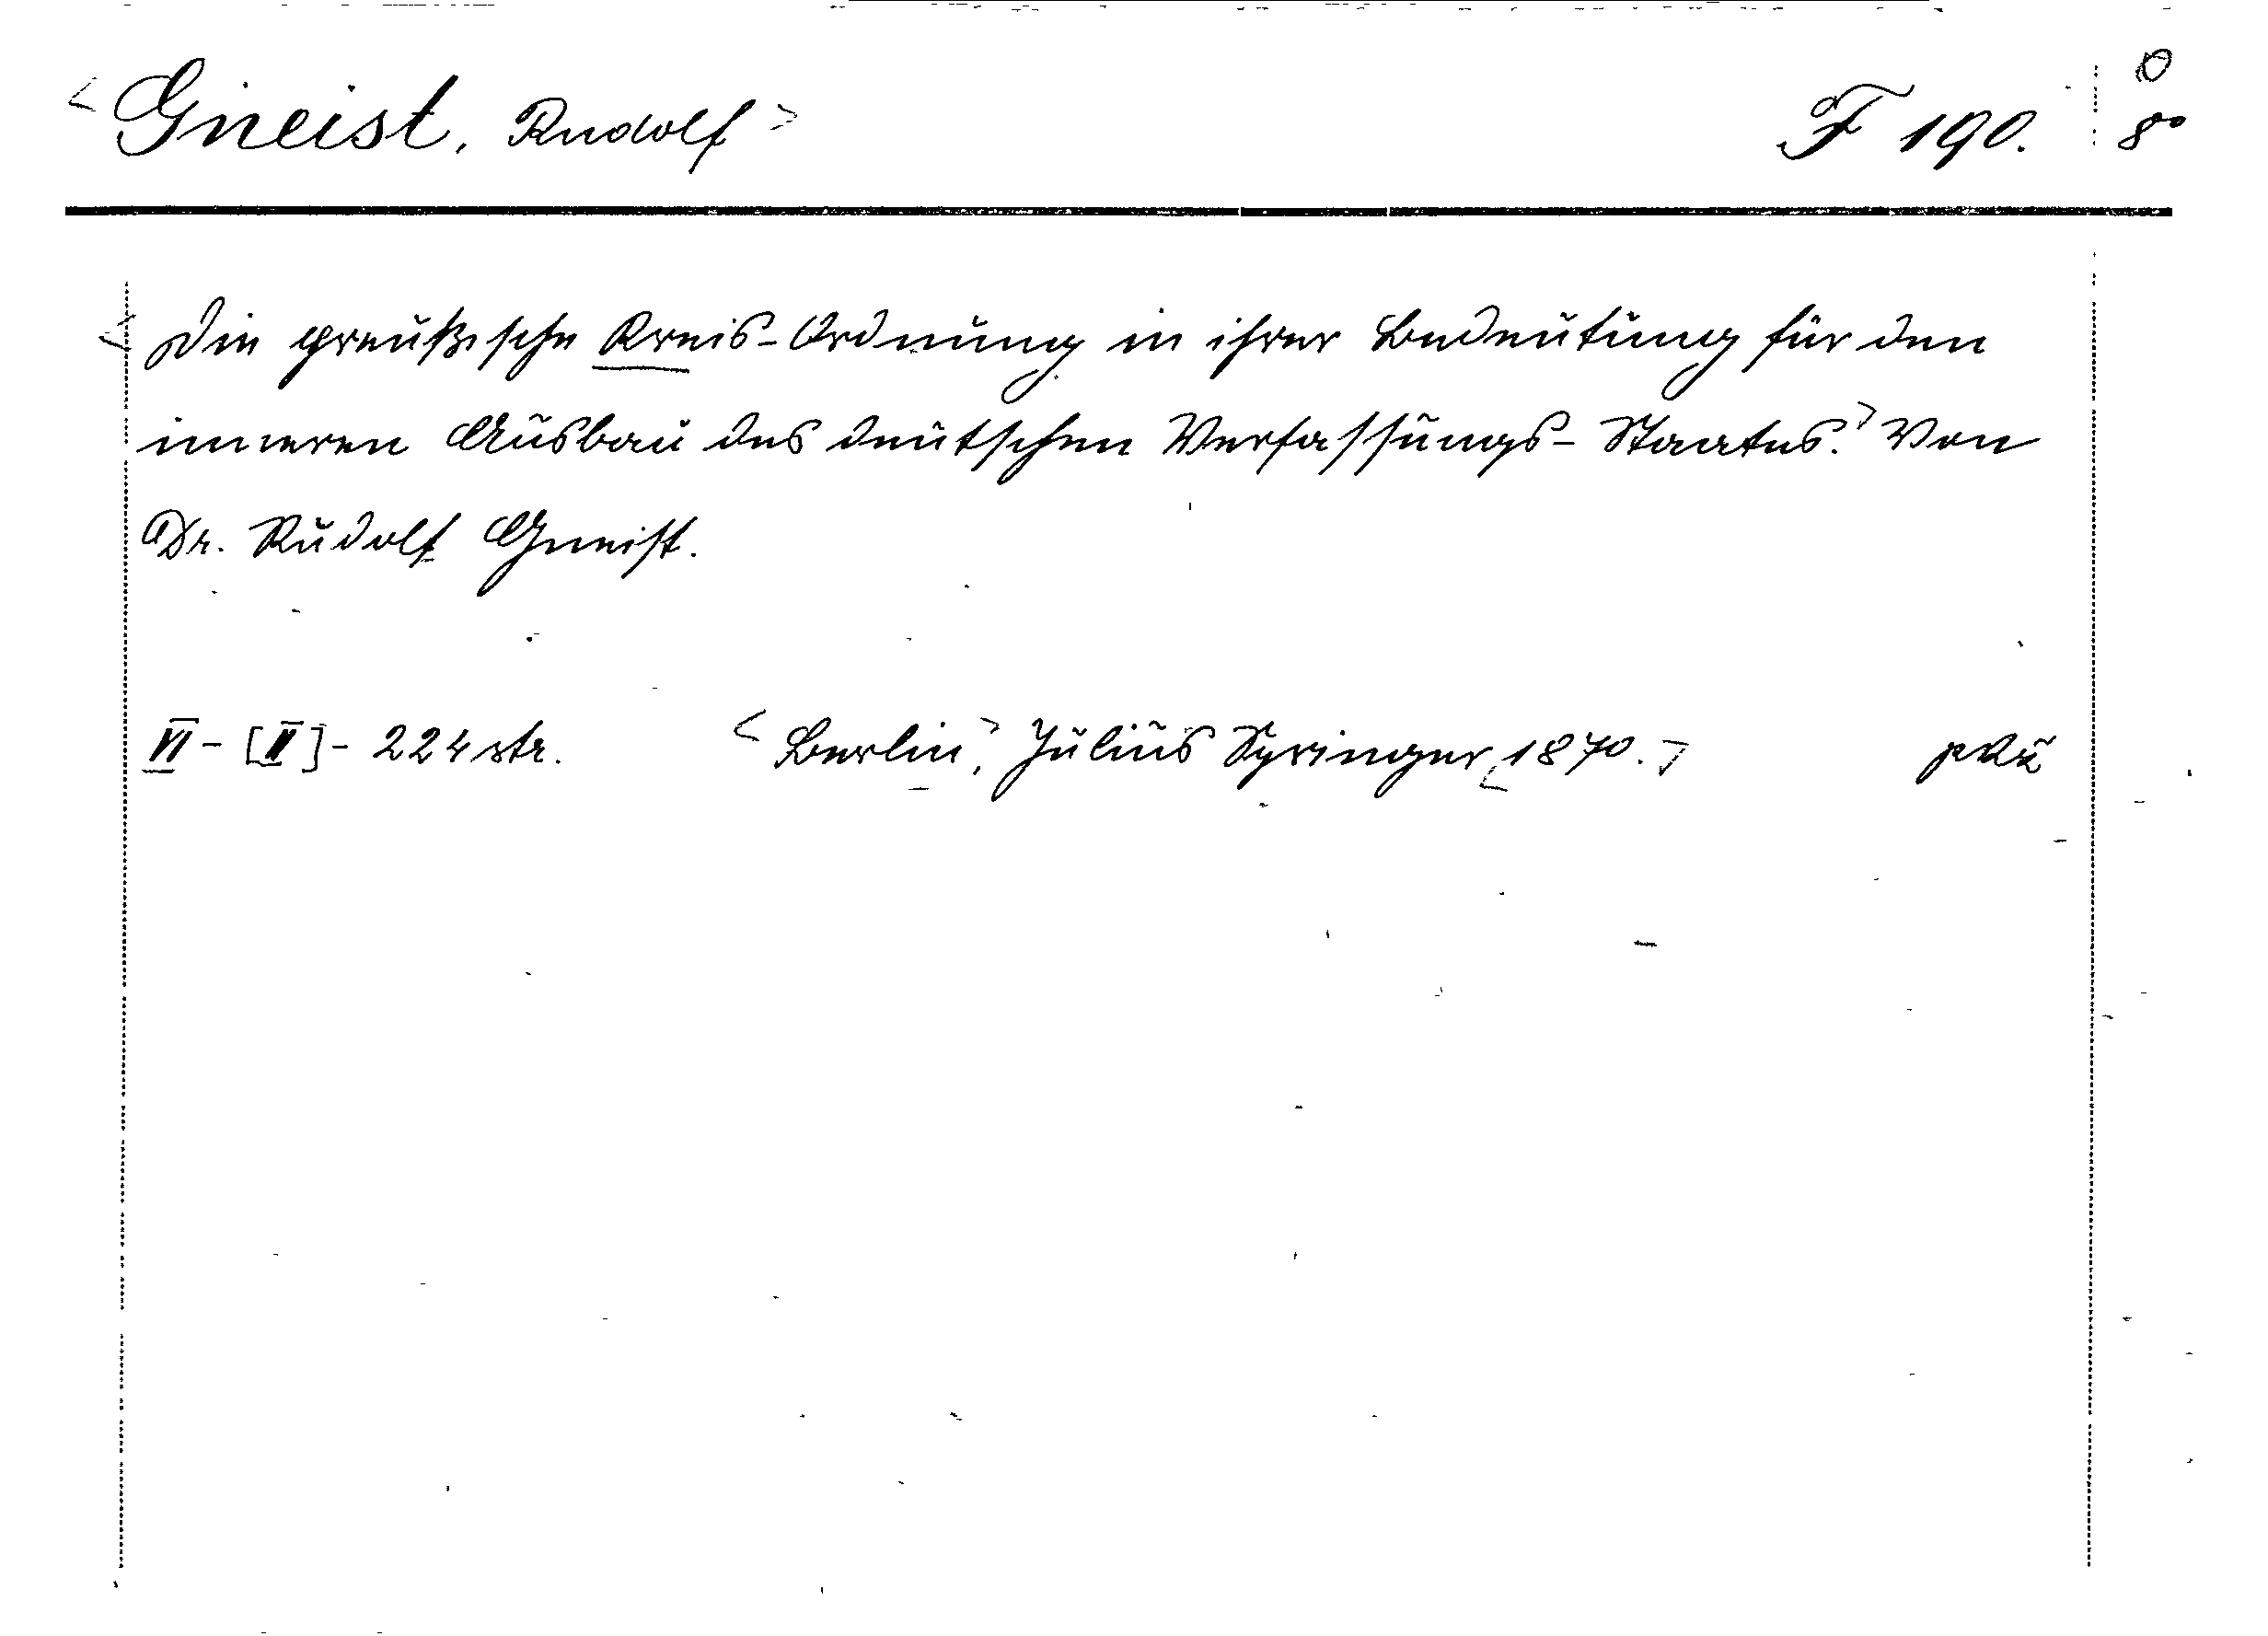 <Gneist, Rudolf> F 190. 8°
<Die preußische Kreis-Ordnung in ihrer Bedeutung für den
inneren Ausbau des deutschen Verfassungs-Staates.> Von
Dr. Rudolf Gneist.
VI-[II]-224 str. <Berlin>, Julius Springer, 1870.